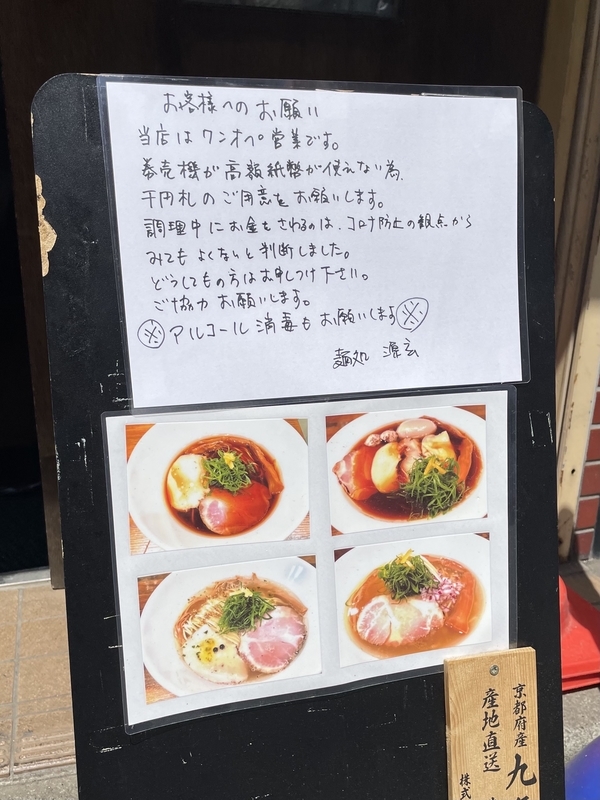 お客様へのお願い
当店はワンオペ営業です。
券売機が高額紙幣が使えない為、
千円札のご用意をお願いします。
調理中にお金もさわるのは、コロナ防止の観点から
みてもよくないと判断しました。
どうしてもの方はお申しつけ下さい。
ご協力お願いします。
※アルコール消毒もお願いします※
麺処 源玄
京都府産 九
産地直送
株式